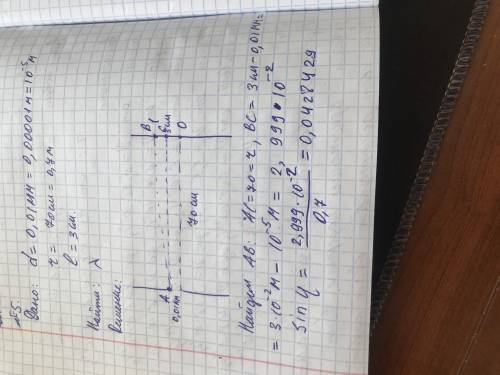 №5.
Дано: d = 0,01 мм = 0,00001 м = 10⁻⁵ м
r = 70 см = 0,7 м
l = 3 см.
Найти: λ
Решение:
B C O
3 см
70 см
A
0,01 мм
Найдем AB: AC = 70 = r, BC = 3 см - 0,01 мм =
= 3·10⁻² м - 10⁻⁵ м = 2,999·10⁻²
sin φ = 2,999·10⁻² / 0,7 = 0,0428429